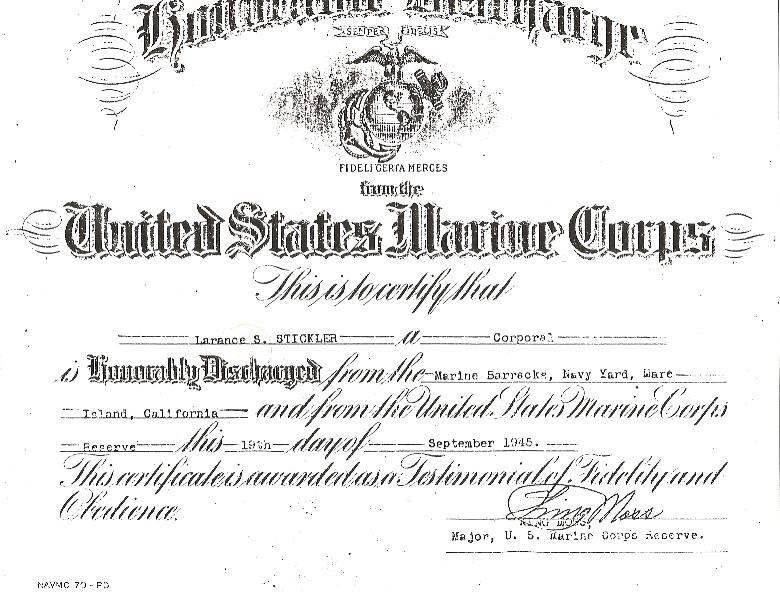 Honorable Discharge
SEMPER FIDELIS
FIDELI CERTA MERCES
from the
United States Marine Corps
This is to certify that
Larance S. STICKLER a Corporal
is Honorably Discharged from the Marine Barracks, Navy Yard, Mare
Island, California and from the United States Marine Corps
Reserve this 19th day of September 1945.
This certificate is awarded as a Testimonial of Fidelity and
Obedience.
King Moss
KING MOSS,
Major, U. S. Marine Corps Reserve.
NAVMC 70-PD